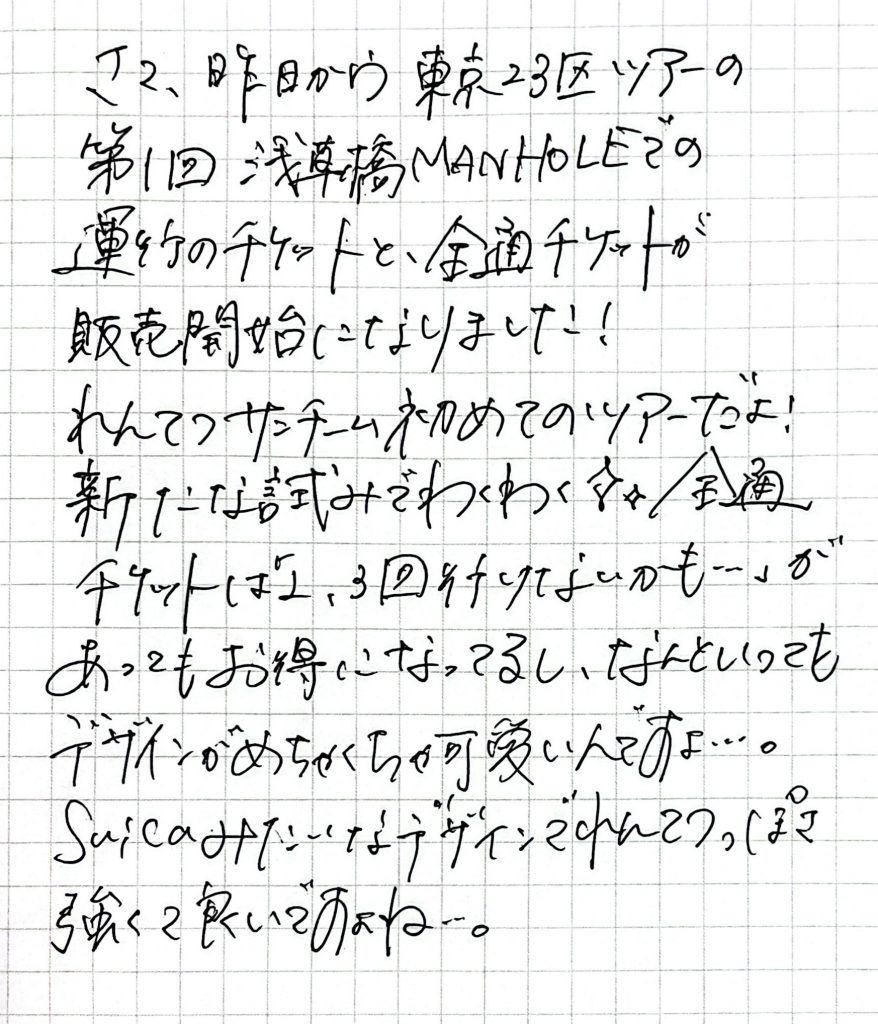 さて、昨日から東京23区ツアーの
第1回 浅草橋MANHOLEでの
運行のチケットと、全通チケットが
販売開始になりました!
れんてつサンチーム初めてのツアーだよ!
新たな試みでわくわく☆☆/全通
チケットは「2、3回行けないかも…」が
あってもお得になってるし、なんといっても
デザインがめちゃくちゃ可愛いんですよ…。
Suicaみたいなデザインでれんてつっぽさ
強くて良いですよね…。